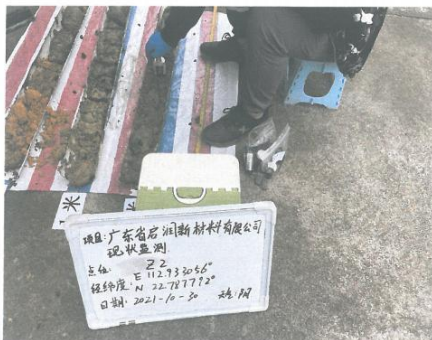 1米
项目:广东省启润新材料有限公司
现状监测
点位: Z2
经纬度: E 112.933056°
N 22.787792°
日期: 2021-10-30 天气:阴